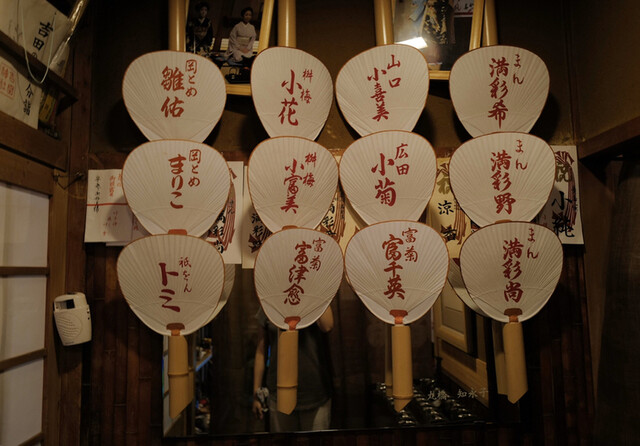 吉田
岡とめ
雛佑
桝梅
小花
山口
小喜美
まん
満彩希
岡とめ
まりこ
桝梅
小富美
広田
小菊
まん
満彩野
祇をん
トミ
富菊
富津愈
富菊
富千英
まん
満彩尚